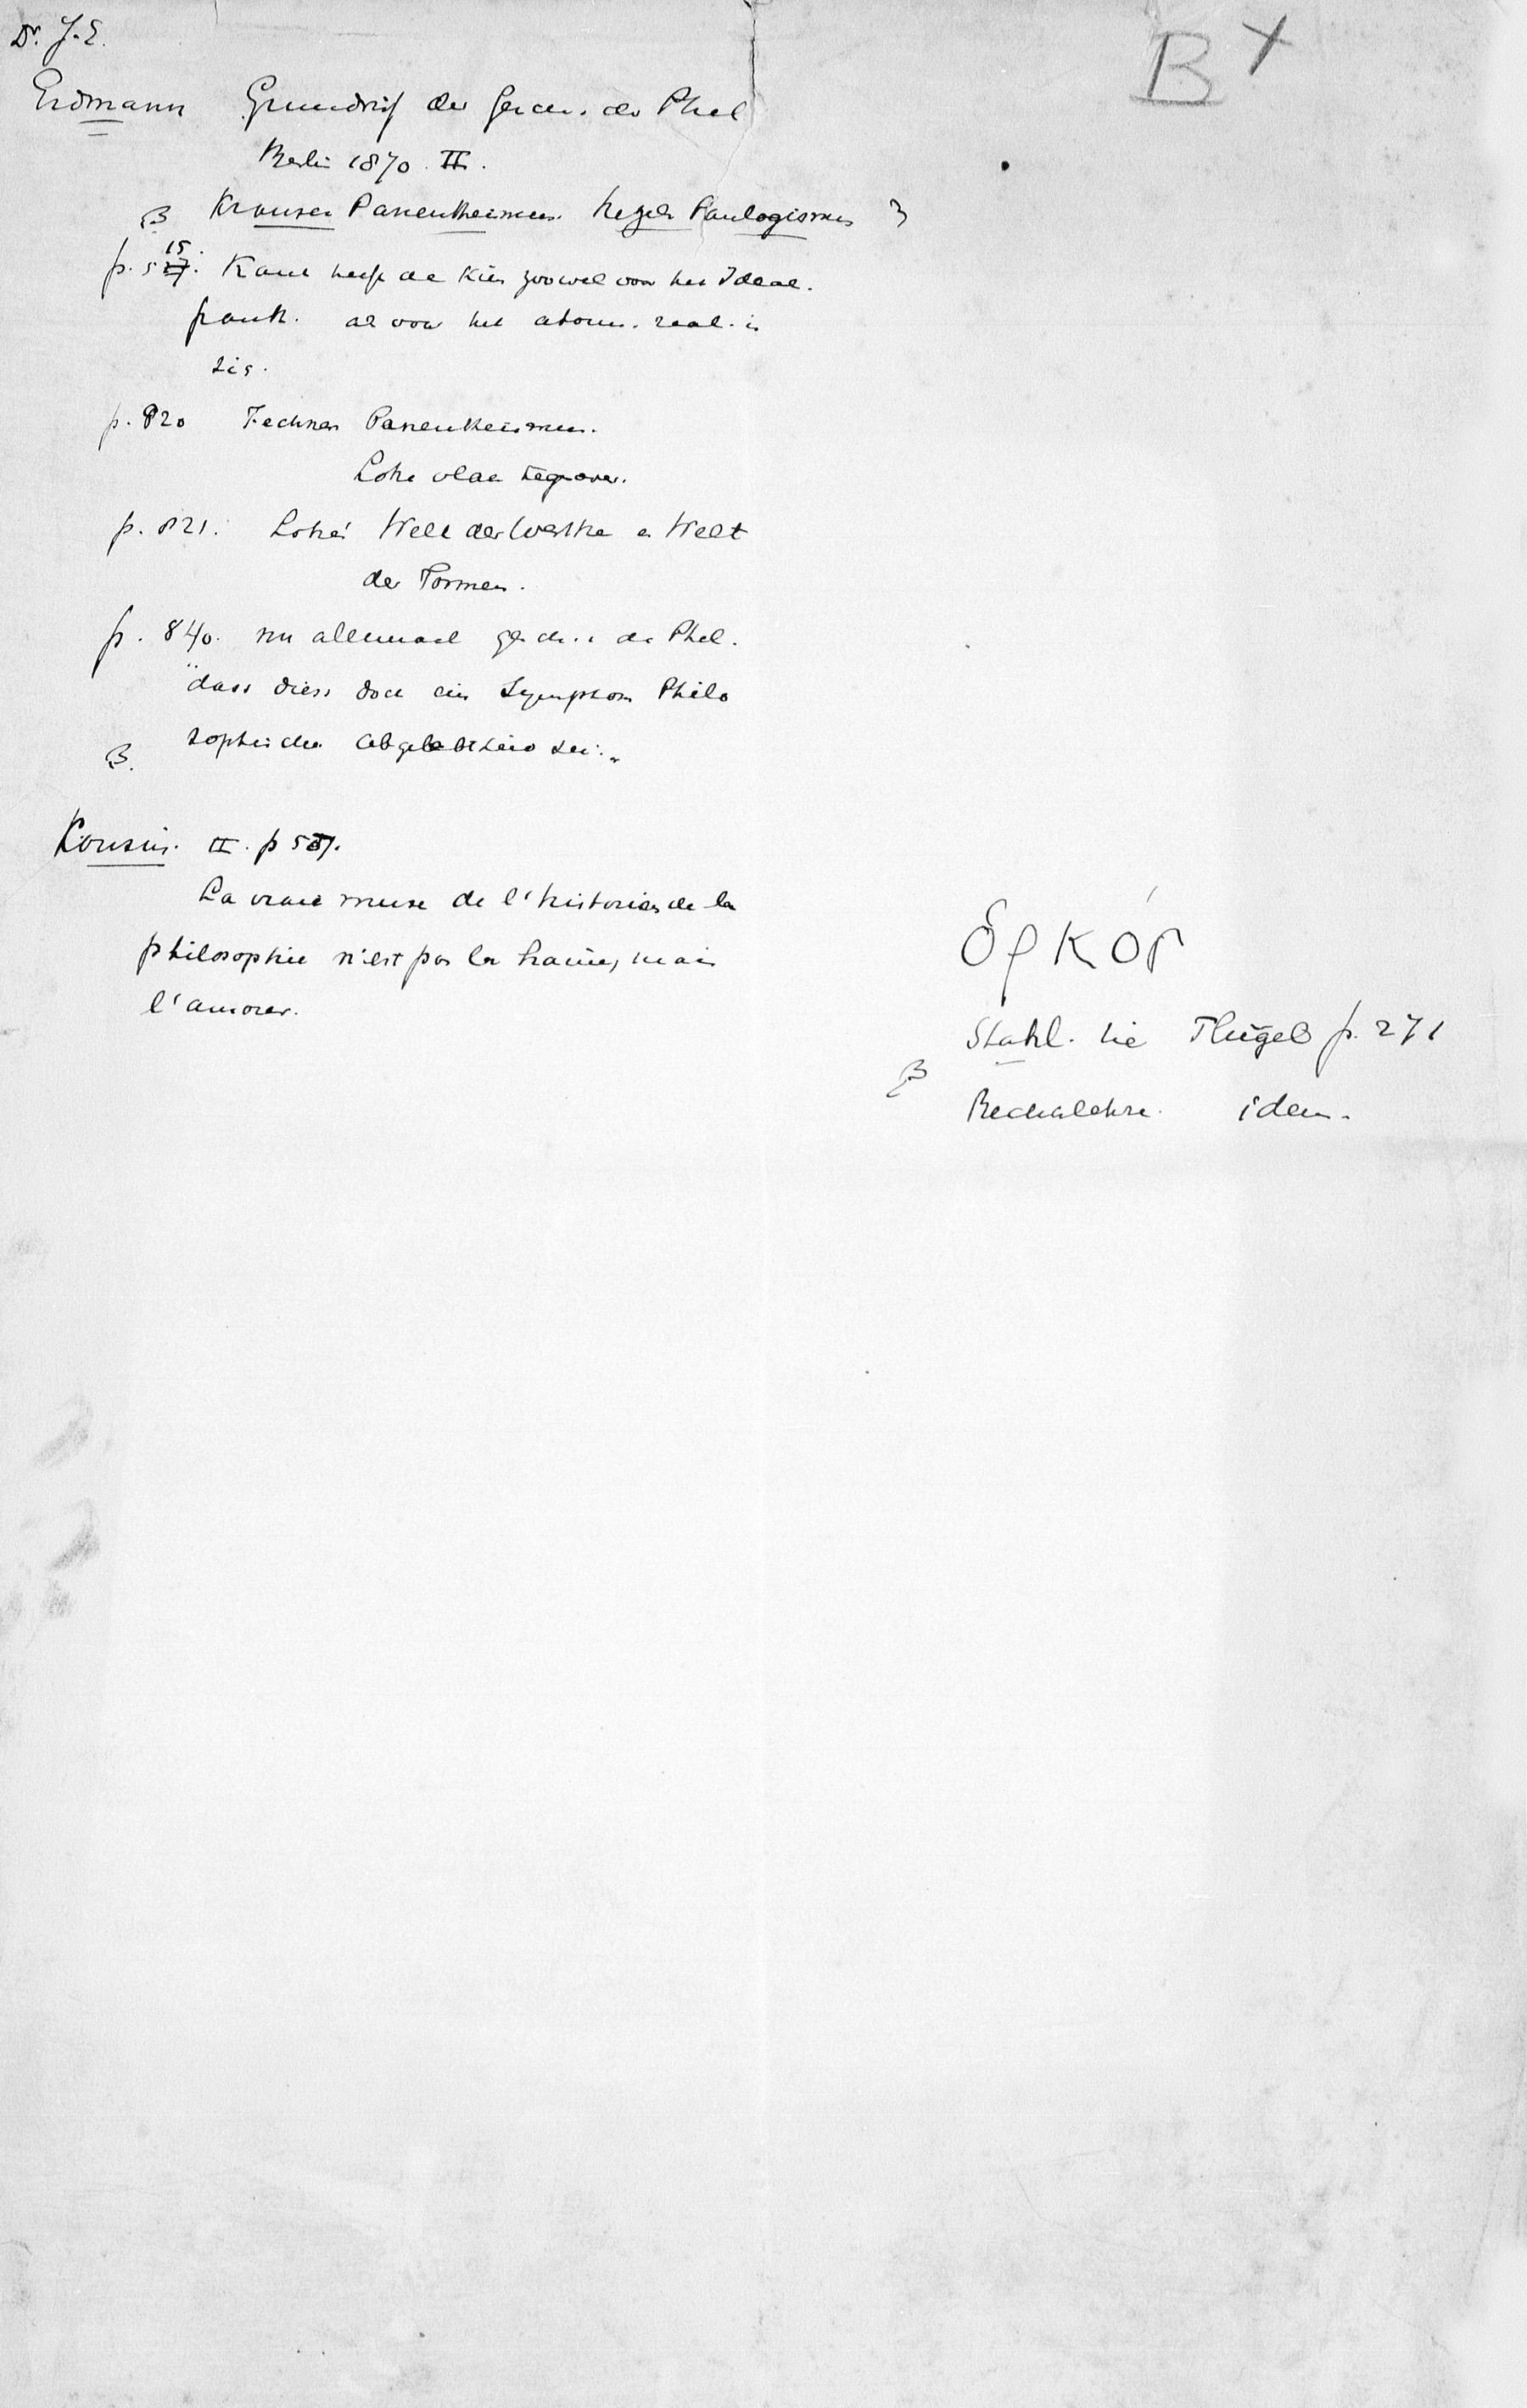 Dr. J. E.
B x
Erdmann Grundriss der Gesch. der Phil
Berlin 1870. II.
B Krauses Panentheismus Hegels Panlogismus
p. 515. Kant heeft de kiem zoowel voor het Ideal.
panth. als voor het atom. real. in
zich.
p. 820 Fechner Panentheismus.
Lotze vlak tegenover.
p. 821. Lotze's Welt der Werthe en Welt
der Formen.
p. 840. nu allemaal gesch. der Phil.
"dass diess doch ein Symptom Philo
B. sophischen Abgelebtseins sei."
Cousin. II. p 587.
La vraie muse de l'historien de la
philosophie n'est pas la haine, mais
l'amour.
ὁρκός
Stahl. zie Flügel p. 271
B
Rechtslehre. idem.